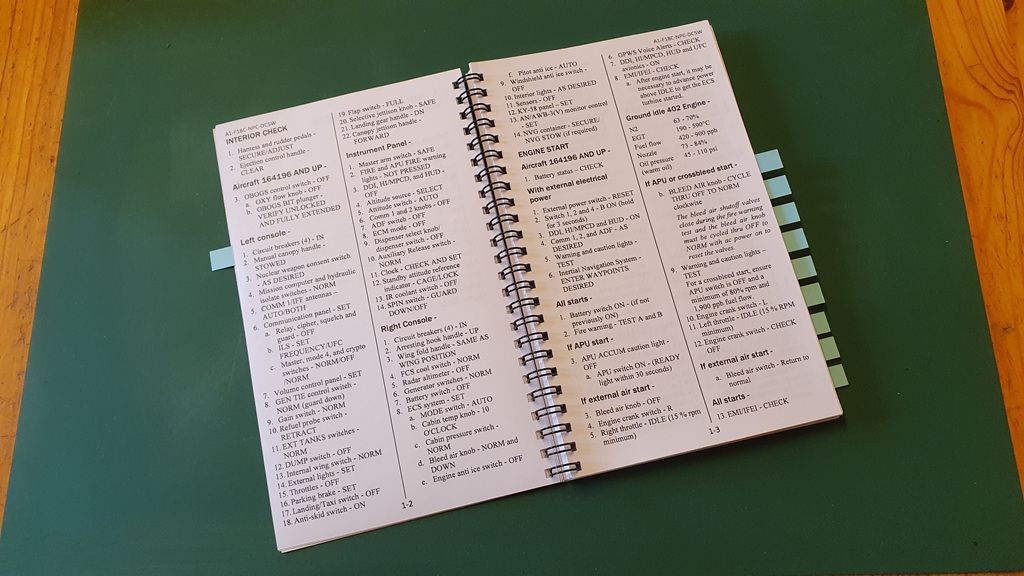 A1-F18C-NPC-DCSW
INTERIOR CHECK
1. Harness and rudder pedals -
SECURE/ADJUST
2. Ejection control handle -
CLEAR
Aircraft 164196 AND UP -
3. OBOGS control switch - OFF
a. OXY flow knob - OFF
b. OBOGS BIT plunger -
VERIFY UNLOCKED
AND FULLY EXTENDED
Left console -
1. Circuit breakers (4) - IN
2. Manual canopy handle -
STOWED
3. Nuclear weapon consent switch
- AS DESIRED
4. Mission computer and hydraulic
isolate switches - NORM
5. COMM 1/IFF antennas –
AUTO/BOTH
6. Communication panel - SET
a. Relay, cipher, squelch and
guard - OFF
b. ILS - SET
FREQUENCY/UFC
c. Master, mode 4, and crypto
switches - NORM/OFF
/NORM
7. Volume control panel - SET
8. GEN TIE control switch -
NORM (guard down)
9. Gain switch - NORM
10. Refuel probe switch -
RETRACT
11. EXT TANKS switches -
NORM
12. DUMP switch - OFF
13. Internal wing switch - NORM
14. External lights - SET
15. Throttles - OFF
16. Parking brake - SET
17. Landing/Taxi switch - OFF
18. Anti-skid switch - ON
19. Flap switch - FULL
20. Selective jettison knob - SAFE
21. Landing gear handle - DN
22. Canopy jettison handle -
FORWARD
Instrument Panel -
1. Master arm switch - SAFE
2. FIRE and APU FIRE warning
lights - NOT PRESSED
3. DDI, HI/MPCD, and HUD -
OFF
4. Altitude source - SELECT
5. Attitude switch - AUTO
6. Comm 1 and 2 knobs - OFF
7. ADF switch - OFF
8. ECM mode - OFF
9. Dispenser select knob/
dispenser switch - OFF
10. Auxiliary Release switch -
NORM
11. Clock - CHECK AND SET
12. Standby attitude reference
indicator - CAGE/LOCK
13. IR coolant switch - OFF
14. SPIN switch - GUARD
DOWN/OFF
Right Console -
1. Circuit breakers (4) - IN
2. Arresting hook handle - UP
3. Wing fold handle - SAME AS
WING POSITION
4. FCS cool switch - NORM
5. Radar altimeter - OFF
6. Generator switches - NORM
7. Battery switch - OFF
8. ECS system - SET
a. MODE switch - AUTO
b. Cabin temp knob - 10
O'CLOCK
c. Cabin pressure switch -
NORM
d. Bleed air knob - NORM and
DOWN
e. Engine anti ice switch - OFF
1-2
A1-F18C-NPC-DCSW
f. Pitot anti ice - AUTO
9. Windshield anti ice switch -
OFF
10. Interior lights - AS DESIRED
11. Sensors - OFF
12. KY-58 panel - SET
13. AN/AWB-3(V) monitor control
- SET
14. NVG container - SECURE/
NVG STOW (if required)
ENGINE START
Aircraft 164196 AND UP -
1. Battery status – CHECK
With external electrical
power
1. External power switch - RESET
2. Switch 1, 2 and 4 - B ON (hold
for 3 seconds)
3. DDI, HI/MPCD and HUD - ON
4. Comm 1, 2, and ADF - AS
DESIRED
5. Warning and caution lights -
TEST
6. Inertial Navigation System -
ENTER WAYPOINTS
DESIRED
All starts -
1. Battery switch ON - (if not
previously ON)
2. Fire warning - TEST A and B
If APU start -
3. APU ACCUM caution light -
OFF
a. APU switch ON - (READY
light within 30 seconds)
If external air start -
3. Bleed air knob - OFF
4. Engine crank switch - R
5. Right throttle - IDLE (15 % rpm
minimum)
6. GPWS Voice Alerts - CHECK
7. DDI, HI/MPCD, HUD and UFC
avionics - ON
8. EMI/IFEI - CHECK
a. After engine start, it may be
necessary to advance power
above IDLE to get the ECS
turbine started.
Ground idle 402 Engine -
N2 63 - 70%
EGT 190 - 590°C
Fuel flow 420 - 900 pph
Nozzle 73 - 84%
Oil pressure 45 - 110 psi
(warm oil)
If APU or crossbleed start -
b. BLEED AIR knob - CYCLE
THRU OFF TO NORM
clockwise
The bleed air shutoff valves
close during the fire warning
test and the bleed air knob
must be cycled thru OFF to
NORM with ac power on to
reset the valves.
9. Warning and caution lights -
TEST
For a crossbleed start, ensure
APU switch is OFF and a
minimum of 80% rpm and
1,900 pph fuel flow.
10. Engine crank switch - L
11. Left throttle - IDLE (15 % RPM
minimum)
12. Engine crank switch - CHECK
OFF
If external air start -
a. Bleed air switch - Return to
normal
All starts -
13. EMI/IFEI - CHECK
1-3